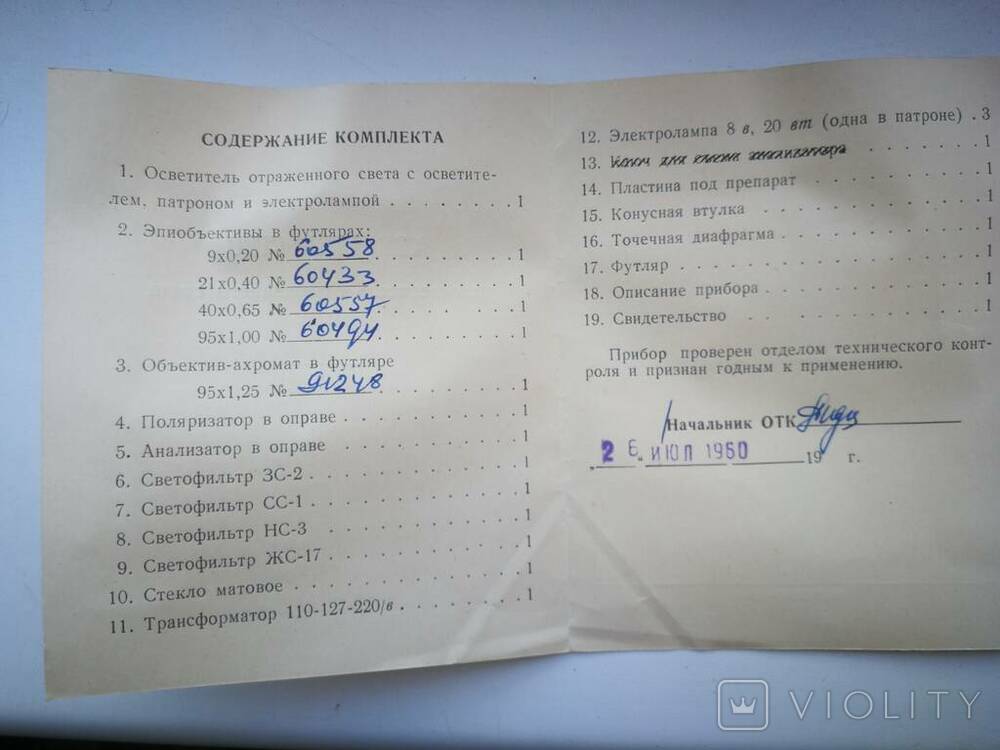 СОДЕРЖАНИЕ КОМПЛЕКТА
1. Осветитель отраженного света с осветите-
лем, патроном и электролампой . . . . . . . . 1
2. Эпиобъективы в футлярах:
9х0,20 № 60558 . . . . . . 1
21х0,40 № 60433 . . . . . . 1
40х0,65 № 60557 . . . . . . 1
95х1,00 № 60494 . . . . . . 1
3. Объектив-ахромат в футляре
95х1,25 № 91248 . . . . . . 1
4. Поляризатор в оправе . . . . . . . . 1
5. Анализатор в оправе . . . . . . . . 1
6. Светофильтр ЗС-2 . . . . . . . . . 1
7. Светофильтр СС-1 . . . . . . . . . 1
8. Светофильтр НС-3 . . . . . . . . . 1
9. Светофильтр ЖС-17 . . . . . . . . . 1
10. Стекло матовое . . . . . . . . . . 1
11. Трансформатор 110-127-220/в . . . . . . 1
12. Электролампа 8 в, 20 вт (одна в патроне) . 3
13. . . . . . . 1
14. Пластина под препарат . . . . . . . 1
15. Конусная втулка . . . . . . . . . 1
16. Точечная диафрагма . . . . . . . . 1
17. Футляр . . . . . . . . . . . . 1
18. Описание прибора . . . . . . . . . 1
19. Свидетельство . . . . . . . . . . 1
Прибор проверен отделом технического конт-
роля и признан годным к применению.
Начальник ОТК
„26“ ИЮЛ 1960 19 г.
VIOLITY